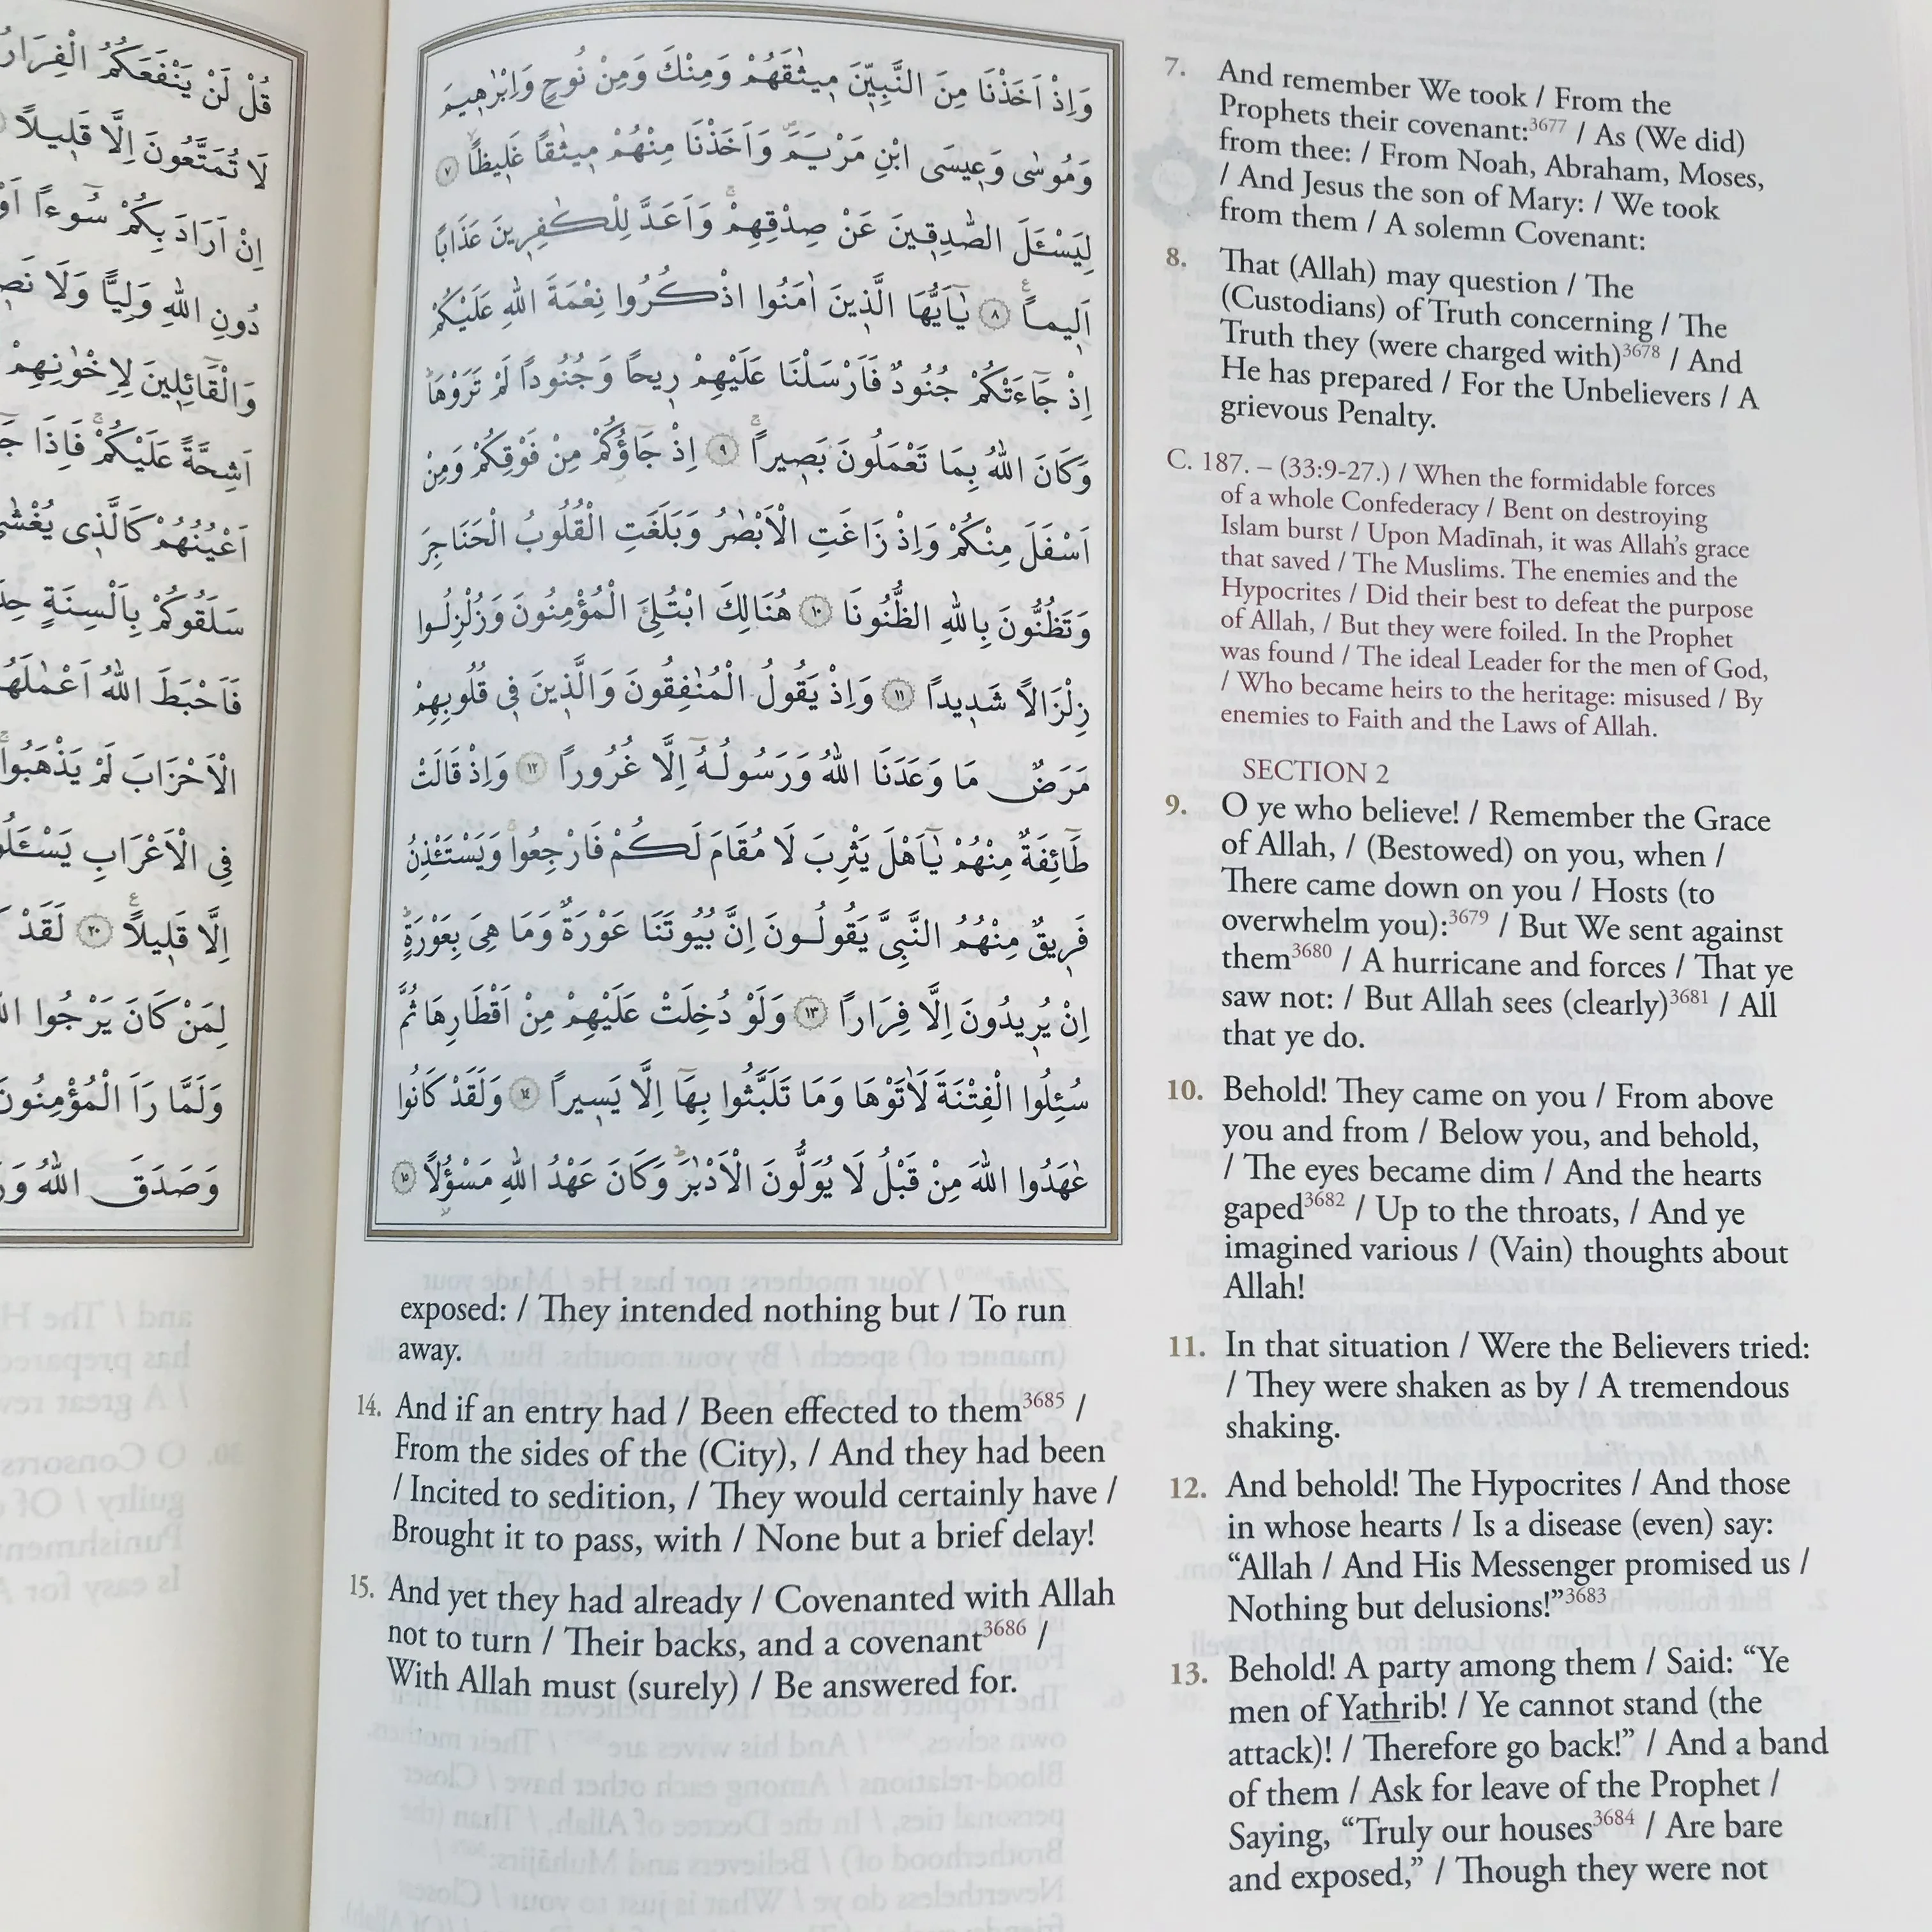 قُلْ لَنْ يَنْفَعَكُمُ الْفِرَارُ
لَا تُمَتَّعُونَ اِلَّا قَلِيلاً
اِنْ اَرَادَ بِكُمْ سُوءاً اَوْ
دُونِ اللّٰهِ وَلِيًّا وَلَا
وَالْقَٓائِلِينَ لِاِخْوٰنِهِمْ
اَشِحَّةً عَلَيْكُمْ فَاِذَا
اَعْيُنُهُمْ كَالَّذِى يُغْشٰى
سَلَقُوكُمْ بِاَلْسِنَةٍ
فَاَحْبَطَ اللّٰهُ اَعْمٰلَهُمْ
الْاَحْزَابَ لَمْ يَذْهَبُوا
فِى الْاَعْرَابِ
اِلَّا قَلِيلاً ٢٠ لَقَدْ
لِمَنْ كَانَ يَرْجُوا
وَلَمَّا رَاَ الْمُؤْمِنُونَ
وَصَدَقَ اللّٰهُ
وَاِذْ اَخَذْنَا مِنَ النَّبِيّٖنَ مِيثٰقَهُمْ وَمِنْكَ وَمِنْ نُوحٍ وَاِبْرٰهِيمَ
وَمُوسٰى وَعِيسَى ابْنِ مَرْيَمَ وَاَخَذْنَا مِنْهُمْ مِيثٰقاً غَلِيظاً ٧
لِيَسْـَٔلَ الصّٰدِقِينَ عَنْ صِدْقِهِمْ وَاَعَدَّ لِلْكٰفِرِينَ عَذَاباً
اَلِيماً ٨ يَٓا اَيُّهَا الَّذِينَ اٰمَنُوا اذْكُرُوا نِعْمَةَ اللّٰهِ عَلَيْكُمْ
اِذْ جَٓاءَتْكُمْ جُنُودٌ فَاَرْسَلْنَا عَلَيْهِمْ رِيحاً وَجُنُوداً لَمْ تَرَوْهَا
وَكَانَ اللّٰهُ بِمَا تَعْمَلُونَ بَصِيراً ٩ اِذْ جَٓاؤُكُمْ مِنْ فَوْقِكُمْ وَمِنْ
اَسْفَلَ مِنْكُمْ وَاِذْ زَاغَتِ الْاَبْصٰرُ وَبَلَغَتِ الْقُلُوبُ الْحَنَاجِرَ
وَتَظُنُّونَ بِاللّٰهِ الظُّنُونَا ١٠ هُنَالِكَ ابْتُلِىَ الْمُؤْمِنُونَ وَزُلْزِلُوا
زِلْزَالاً شَدِيداً ١١ وَاِذْ يَقُولُ الْمُنٰفِقُونَ وَالَّذِينَ فِى قُلُوبِهِمْ
مَرَضٌ مَا وَعَدَنَا اللّٰهُ وَرَسُولُهُٓ اِلَّا غُرُوراً ١٢ وَاِذْ قَالَتْ
طَٓائِفَةٌ مِنْهُمْ يَٓا اَهْلَ يَثْرِبَ لَا مُقَامَ لَكُمْ فَارْجِعُوا وَيَسْتَـْٔذِنُ
فَرِيقٌ مِنْهُمُ النَّبِىَّ يَقُولُونَ اِنَّ بُيُوتَنَا عَوْرَةٌ وَمَا هِىَ بِعَوْرَةٍ
اِنْ يُرِيدُونَ اِلَّا فِرَاراً ١٣ وَلَوْ دُخِلَتْ عَلَيْهِمْ مِنْ اَقْطَارِهَا ثُمَّ
سُئِلُوا الْفِتْنَةَ لَاٰتَوْهَا وَمَا تَلَبَّثُوا بِهَٓا اِلَّا يَسِيراً ١٤ وَلَقَدْ كَانُوا
عٰهَدُوا اللّٰهَ مِنْ قَبْلُ لَا يُوَلُّونَ الْاَدْبٰرَ وَكَانَ عَهْدُ اللّٰهِ مَسْؤُلاً ١٥
7. And remember We took / From the
Prophets their covenant:3677 / As (We did)
from thee: / From Noah, Abraham, Moses,
/ And Jesus the son of Mary: / We took
from them / A solemn Covenant:
8. That (Allah) may question / The
(Custodians) of Truth concerning / The
Truth they (were charged with)3678 / And
He has prepared / For the Unbelievers / A
grievous Penalty.
C. 187. – (33:9-27.) / When the formidable forces
of a whole Confederacy / Bent on destroying
Islam burst / Upon Madīnah, it was Allah's grace
that saved / The Muslims. The enemies and the
Hypocrites / Did their best to defeat the purpose
of Allah, / But they were foiled. In the Prophet
was found / The ideal Leader for the men of God,
/ Who became heirs to the heritage: misused / By
enemies to Faith and the Laws of Allah.
SECTION 2
9. O ye who believe! / Remember the Grace
of Allah, / (Bestowed) on you, when /
There came down on you / Hosts (to
overwhelm you):3679 / But We sent against
them3680 / A hurricane and forces / That ye
saw not: / But Allah sees (clearly)3681 / All
that ye do.
10. Behold! They came on you / From above
you and from / Below you, and behold,
/ The eyes became dim / And the hearts
gaped3682 / Up to the throats, / And ye
imagined various / (Vain) thoughts about
Allah!
11. In that situation / Were the Believers tried:
/ They were shaken as by / A tremendous
shaking.
12. And behold! The Hypocrites / And those
in whose hearts / Is a disease (even) say:
“Allah / And His Messenger promised us /
Nothing but delusions!”3683
13. Behold! A party among them / Said: “Ye
men of Yathrib! / Ye cannot stand (the
attack)! / Therefore go back!” / And a band
of them / Ask for leave of the Prophet /
Saying, “Truly our houses3684 / Are bare
and exposed,” / Though they were not
exposed: / They intended nothing but / To run
away.
14. And if an entry had / Been effected to them3685 /
From the sides of the (City), / And they had been
/ Incited to sedition, / They would certainly have /
Brought it to pass, with / None but a brief delay!
15. And yet they had already / Covenanted with Allah
not to turn / Their backs, and a covenant3686 /
With Allah must (surely) / Be answered for.